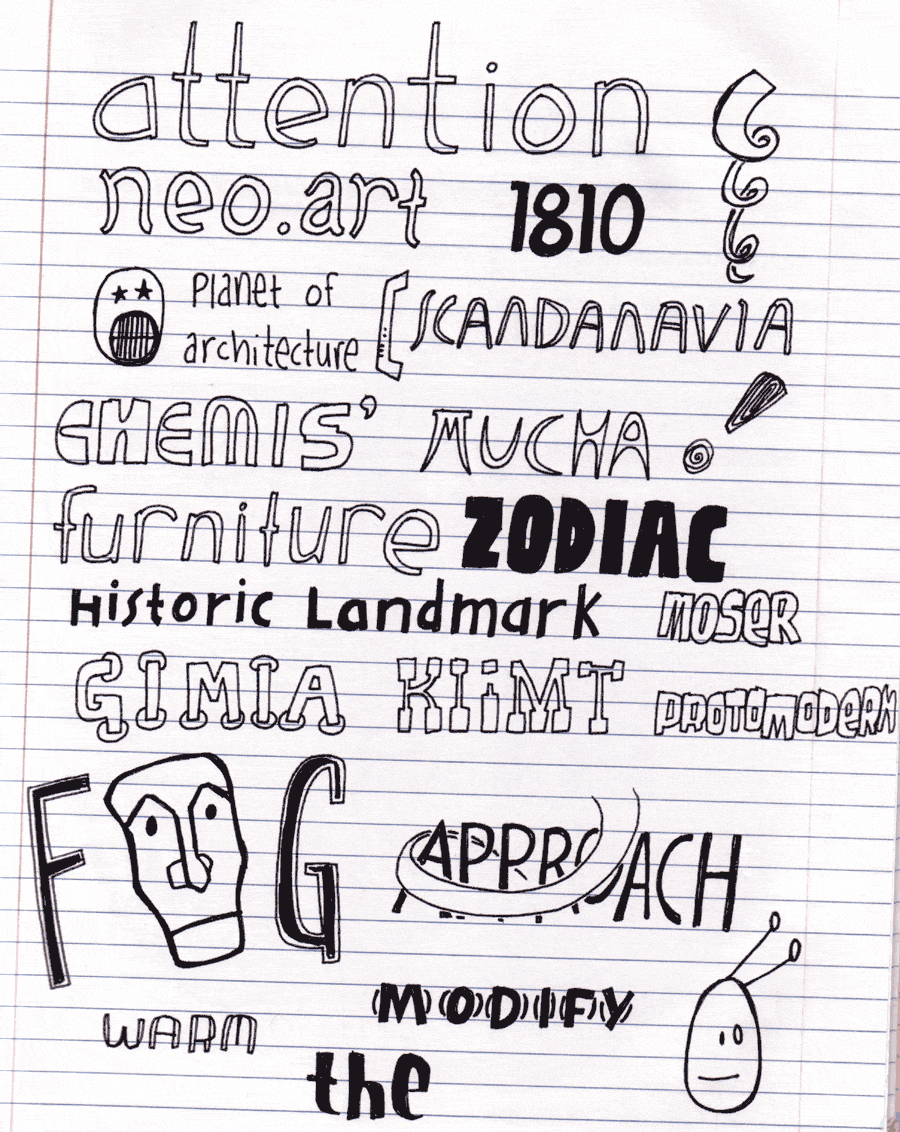 attention
neo.art 1810
Planet of
architecture SCANDANAVIA
EHEMIS' MUCHA !
furniture ZODIAC
Historic Landmark MOSeR
GIMIA KLiMT PROTOMODERN
F G APPROACH
MODIFY
WARM
the